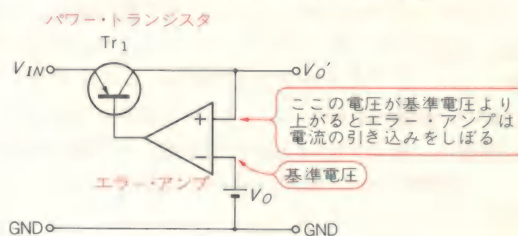 パワー・トランジスタ
Tr1
VIN
VO'
+
ここの電圧が基準電圧より
上がるとエラー・アンプは
電流の引き込みをしぼる
−
エラー・アンプ
基準電圧
VO
GND
GND